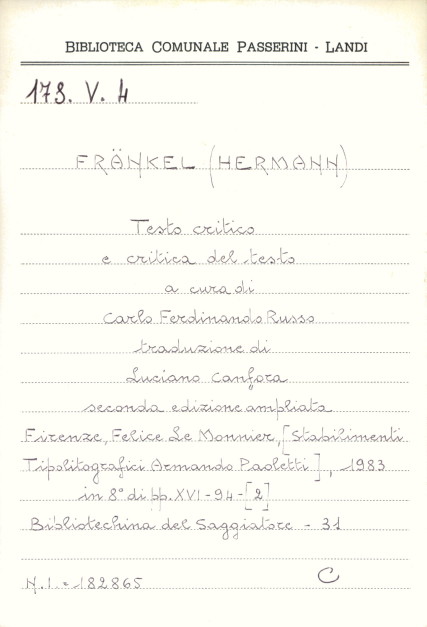 BIBLIOTECA COMUNALE PASSERINI - LANDI
173. V. 4
FRÄNKEL (HERMANN)
Testo critico
e critica del testo
a cura di
Carlo Ferdinando Russo
traduzione di
Luciano Canfora
seconda edizione ampliata
Firenze, Felice Le Monnier, [Stabilimenti
Tipolitografici Armando Paoletti], 1983
in 8° di pp. XVI - 94 - [2]
Bibliotechina del Saggiatore - 31
N.I. = 182865
C